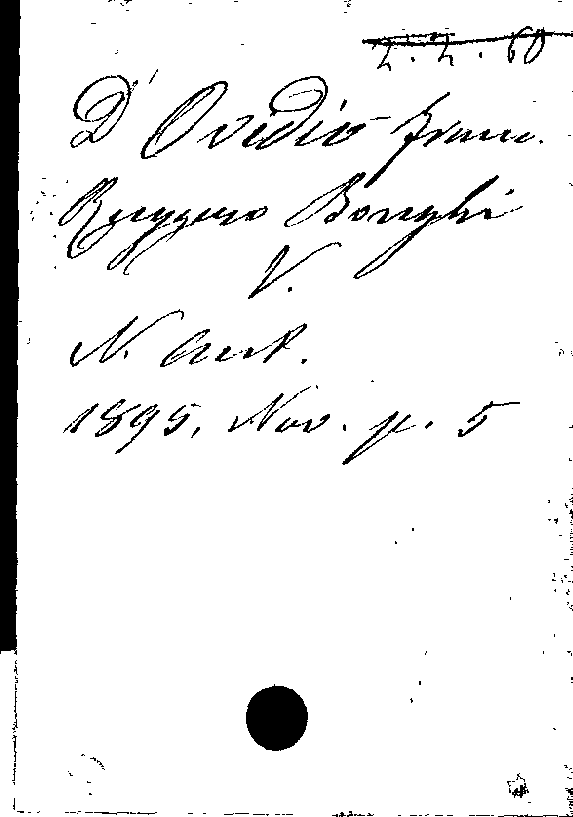 D'Ovidio Franc.
Ruggero Bonghi
V.
N. Ant.
1895, Nov. p. 5